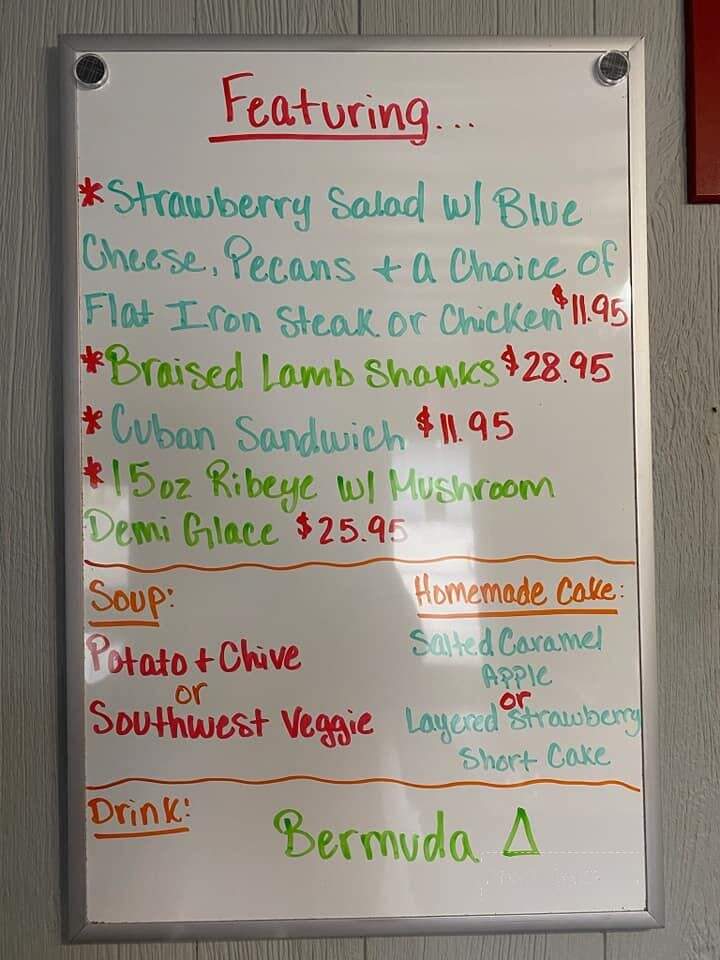 Featuring...
*Strawberry Salad w/ Blue
Cheese, Pecans + a Choice of
Flat Iron Steak or Chicken $11.95
*Braised Lamb Shanks $28.95
*Cuban Sandwich $11.95
*15oz Ribeye w/ Mushroom
Demi Glace $25.95
Soup:
Potato + Chive
or
Southwest Veggie
Homemade Cake:
Salted Caramel
Apple
or
Layered Strawberry
Short Cake
Drink:
Bermuda Δ